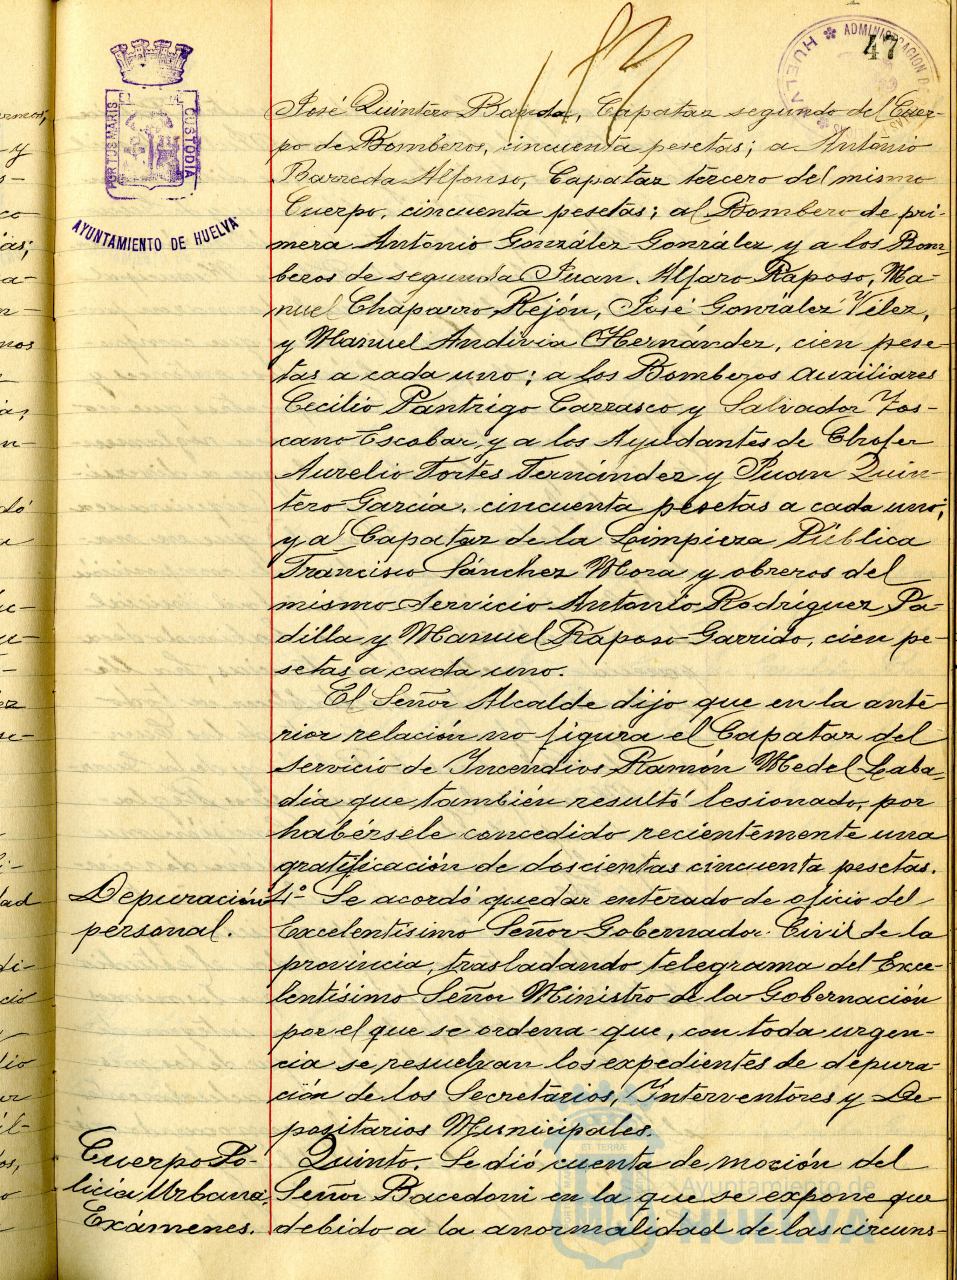 47
ADMINISTRACION DE
HUELVA
PORTUS MARIS
CUSTODIA
AYUNTAMIENTO DE HUELVA
José Quintero Banda, Capataz segundo del Cuer-
po de Bomberos, cincuenta pesetas; a Antonio
Barreda Alfonso, Capataz tercero del mismo
Cuerpo, cincuenta pesetas; al Bombero de pri-
mera Antonio González González y a los Bom-
beros de segunda Juan Alfaro Raposo, Ma-
nuel Chaparro Rejón, José González Vélez,
y Manuel Andivia Hernández, cien pese-
tas a cada uno; a los Bomberos auxiliares
Cecilio Pantrigo Carrasco y Salvador Tos-
cano Escobar, y a los Ayudantes de Chofer
Aurelio Fortes Fernández y Juan Quin-
tero García, cincuenta pesetas a cada uno;
y al Capataz de la Limpieza Pública
Francisco Sánchez Mora y obreros del
mismo Servicio Antonio Rodríguez Pa-
dilla y Manuel Raposo Garrido, cien pe-
setas a cada uno.
El Señor Alcalde dijo que en la ante-
rior relación no figura el Capataz del
Servicio de Incendios Ramón Medel Laba-
día que también resultó lesionado, por
habérsele concedido recientemente una
gratificación de doscientas cincuenta pesetas.
Depuración
personal.
4º Se acordó quedar enterado de oficio del
Excelentísimo Señor Gobernador Civil de la
provincia, trasladando telegrama del Exce-
lentísimo Señor Ministro de la Gobernación
por el que se ordena que, con toda urgen-
cia se resuelvan los expedientes de depura-
ción de los Secretarios, Interventores y De-
positarios Municipales.
Cuerpo Po-
licía Urbana.
Exámenes.
Quinto. Se dió cuenta de moción del
Señor Bacedoni en la que se expone que
debido a la anormalidad de las circuns-
Ayuntamiento de
HUELVA